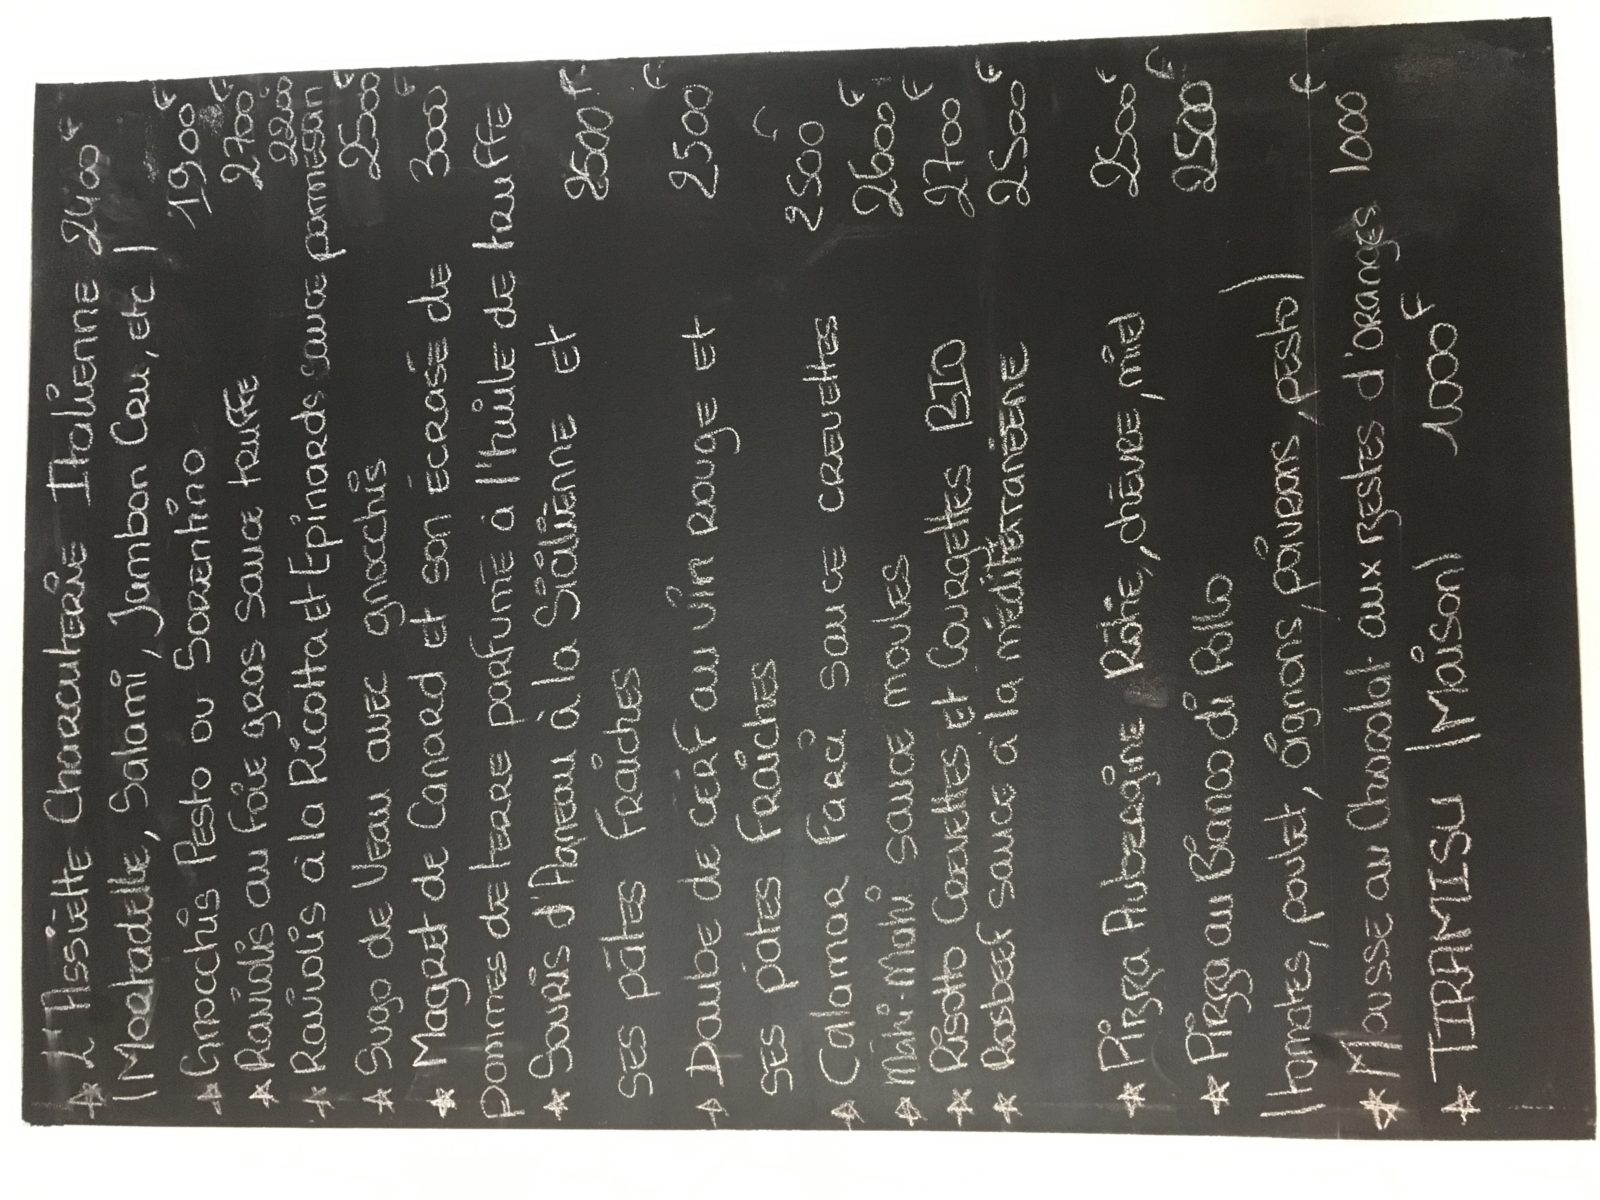 ☆ L'Assiette Charcuterie Italienne 2400 F
(Mortadelle, Salami, Jambon Cru, etc)
☆ Gnocchis Pesto ou Sorrentino 1900 F
☆ Raviolis au foie gras sauce truffe 2700 F
☆ Raviolis à la Ricotta et Epinards sauce parmesan 2200
☆ Sugo de Veau avec gnocchis 2500 F
☆ Magret de Canard et son écrasé de 3000 F
pommes de terre parfumé à l'huile de truffe
☆ Souris d'Agneau à la Sicilienne et 2500 F
ses pâtes fraiches
☆ Daube de cerf au vin rouge et 2500 F
ses pates fraiches
☆ Calamar farci sauce crevettes 2500 F
☆ Mahi-Mahi sauce moules 2600 F
☆ Risotto Crevettes et Courgettes BIO 2700 F
☆ Rosbeef sauce à la méditerranéenne 2500 F
☆ Pizza Aubergine Rôtie, chèvre, miel 2500 F
☆ Pizza au Bianco di Pollo 2500 F
(tomates, poulet, oignons, poivrons, pesto)
☆ Mousse au Chocolat aux zestes d'oranges 1000 F
☆ TIRAMISU (Maison) 1000 F